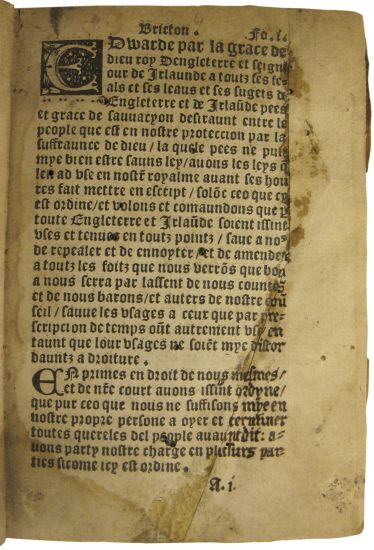 Britton. Fo. i.
EDwarde par la grace de
dieu roy Dengleterre et seign
our de Irlaunde a toutz ses fe-
als et ses leaus et ses sugets de
Engleterre et de Irlaũde pees
et grace de sauuacyon desiraunt entre le
people que est en nostre proteccion par la
suffraunce de dieu / la quele pees ne puit
mye bien estre sauns ley / auons les leys q̃
len ad vse en nostr̃ royalme auant ses hou
res fait mettre en escript / solõc ceo que cy
est ordine / et volons et comaundons que p
toute Engleterre et Irlaũde soient issint
vses et tenues en toutz pointz / saue a no9
de repealer et de ennoyter / et de amende/
a toutz les foitz que nous verrõs que bon
a nous serra par lassent de nous countes
et de nous barons / et auters de nostre coũ
seil / sauue les vsages a ceux que par pre-
scripcion de temps oũt autrement vsy en
taunt que lour vsages ne soiēt myc discor
dauntz a droiture.
EN primes en droit de nous mesmes /
et de nr̃e court auons issint ordyne /
que pur ceo que nous ne suffisons mye en
nostre propre persone a oyer et terminer
toutes quereles del people auauntdit: a-
uous party nostre charge en plusurs par
ties sicome icy est ordine.
A.i.